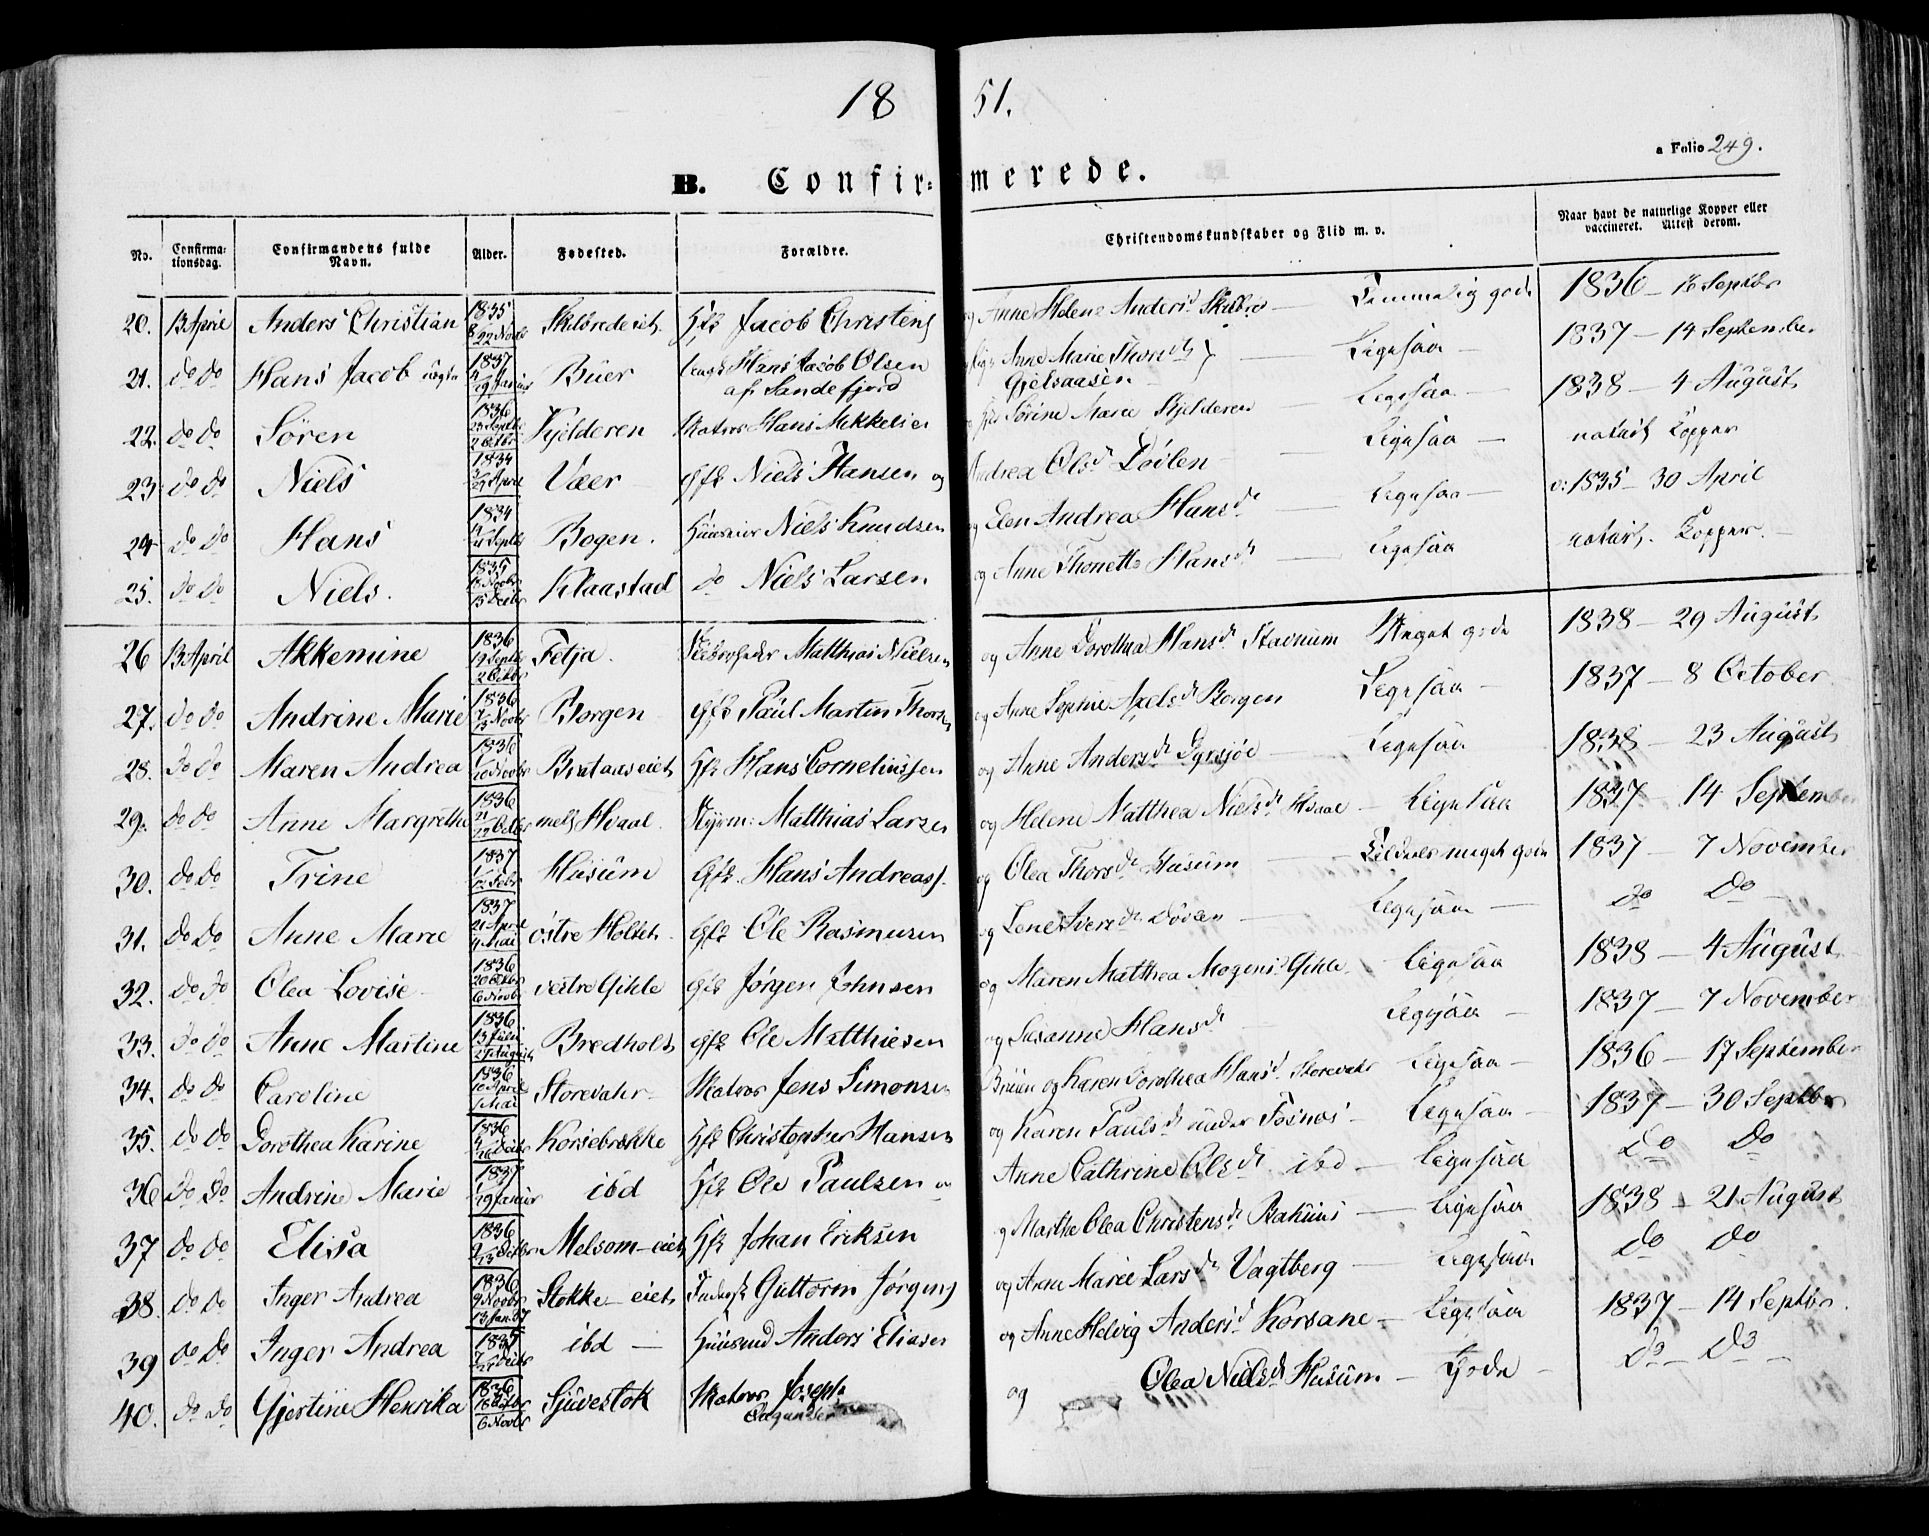 18 51.
a Folio 249.
B. Confir= merede.
No. Confirma-tionsdag. Confirmandens fulde Navn. Alder. Fødested. Forældre. Christendomskundskaber og Flid m. v. Naar havt de naturlige Kopper eller vaccineret. Attest derom.
20. 13 April Anders Christian 1835 22 Novbr Skilbred eiet Jacob Christens og Anne Helene Andersd Skilbred — Temmelig gode 1836 — 16 Septbr
21. do do Hans Jacob uægte 1837 29 Januar Büer Hans Jacob Olsen af Sandefjord Anne Marie Thorsd Gjelsaasen — Ligesaa — 1837 — 14 September
22. do do Søren 1836 23 Septbr 2 Octbr Kjelderen Matros Hans Mikkelsen og Sørine Marie Kjelderen — Ligesaa — 1838 — 4 August
23. do do Niels 1834 27 April Væer Gfb Niels Hansen og Andrea Olsd — Ligesaa — naturl Kopper
24 do do Hans 1834 Septbr Bogen. Huusmr Niels Knudsen og Elen Andrea Hansd — Ligesaa — 1835 — 30 April
25. do do Niels. 1835 Novbr 15 Decbr Klaastad do Niels Larsen og Anne Thonette Hansd — Ligesaa naturl. Kopper. —
26 13 April Akkemine 1836 Septbr 2 Octbr Fetja. Matthias Nielsen og Anne Dorothea Hansd Stavnum Meget gode 1838 — 29 August
27. do do Andrine Marie 1836 13 Novbr Borgen Gfb Paul Martin Thorsen og Anne Sophie Axelsd Borgen Ligesaa — 1837 — 8 October
28. do do Maren Andrea 1836 20 Novbr Brataas eiet Hfb Hans Corneliussen og Anne Andersd Dyrsjøe — Ligesaa 1838 — 23 August
29. do do Anne Margrethe 1836 Octbr mel Hvaal. Styrm: Matthias Larsen og Helene Matthea Nielsd Hvaal — Ligesaa 1837 — 14 September
30. do do Trine 1837 Febr Husum Gfb. Hans Andreas. og Olea Thorsd Husum — meget gode 1837 — 7 November
31. do do Anne Marie 1837 21 April 4 Mai østre Holtet Gfb Ole Rasmusen og Lene Iversd — Ligesaa — do do —
32. do do Olea Lovise 1836 20 Octbr 6 Novbr vestre Gihle Gfb Jørgen Johnsen og Maren Matthea Mogensd Gihle Ligesaa 1838 — 4 August
33. do do Anne Martine 1836 13 Juli 27 August Bredholt Gfb Ole Matthiesen og Susanne Hansd — Ligesaa — 1837 — 7 November
34. do do Caroline 1836 10 April 1 Mai Storevahr — Matros Jens Simonsen Bruun og Karen Dorothea Hansd Storevahr Ligesaa — 1836 — 17 September
35. do do Dorothea Karine 1836 26 Decbr Korsebrekke Hfb Christopher Hansen og Karen Paulsd under Fosnæs — Ligesaa — 1837 — 30 Septbr
36 do do Andrine Marie 1837 19 Januar ibd Hfb Ole Paulsen og Anne Cathrine Olsd ibd — Ligesaa do do
37 do do Elisa 1836 23 Octbr Melsom—eiet Hfb Johan Eriksen og Marthe Olea Christensd — Ligesaa 1838 — 21 August
38. do do Inger Andrea 1836 9 Novbr 13 Jan. 37 Stokke—eiet Guttorm Jørgens og Anne Marie Larsd Vagtberg — Ligesaa do do
39 do do Inger Andrea 1835 Decbr ibd — Huusmd Anders Eliasen og Anne Helvig Andersd Korsane — Ligesaa 1837 — 14 Septbr.
40. do do Gjertine Henrika 1836 16 Octbr 6 Novbr Sjüvestok Matros Joseph og Olea Nielsd Husum — Gode — do — do —